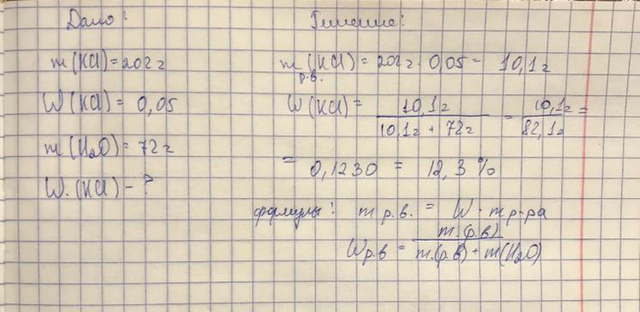 Дано:
m(KCl)=202г
W(KCl)= 0,05
m(H₂O)= 72г
W.(KCl) - ?
Решение:
m р.в. (KCl) = 202г · 0,05 = 10,1г
W(KCl)= 10,1г / 10,1г + 72г = 10,1г / 82,1г =
= 0,1230 = 12,3 %
формулы: m р.в. = W · m р-ра
W р.в = m.(р.в) / m.(р.в) + m(H₂O)